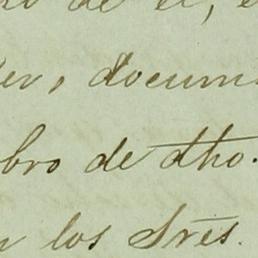 de el,
docum
bro de dho.
los Sres.